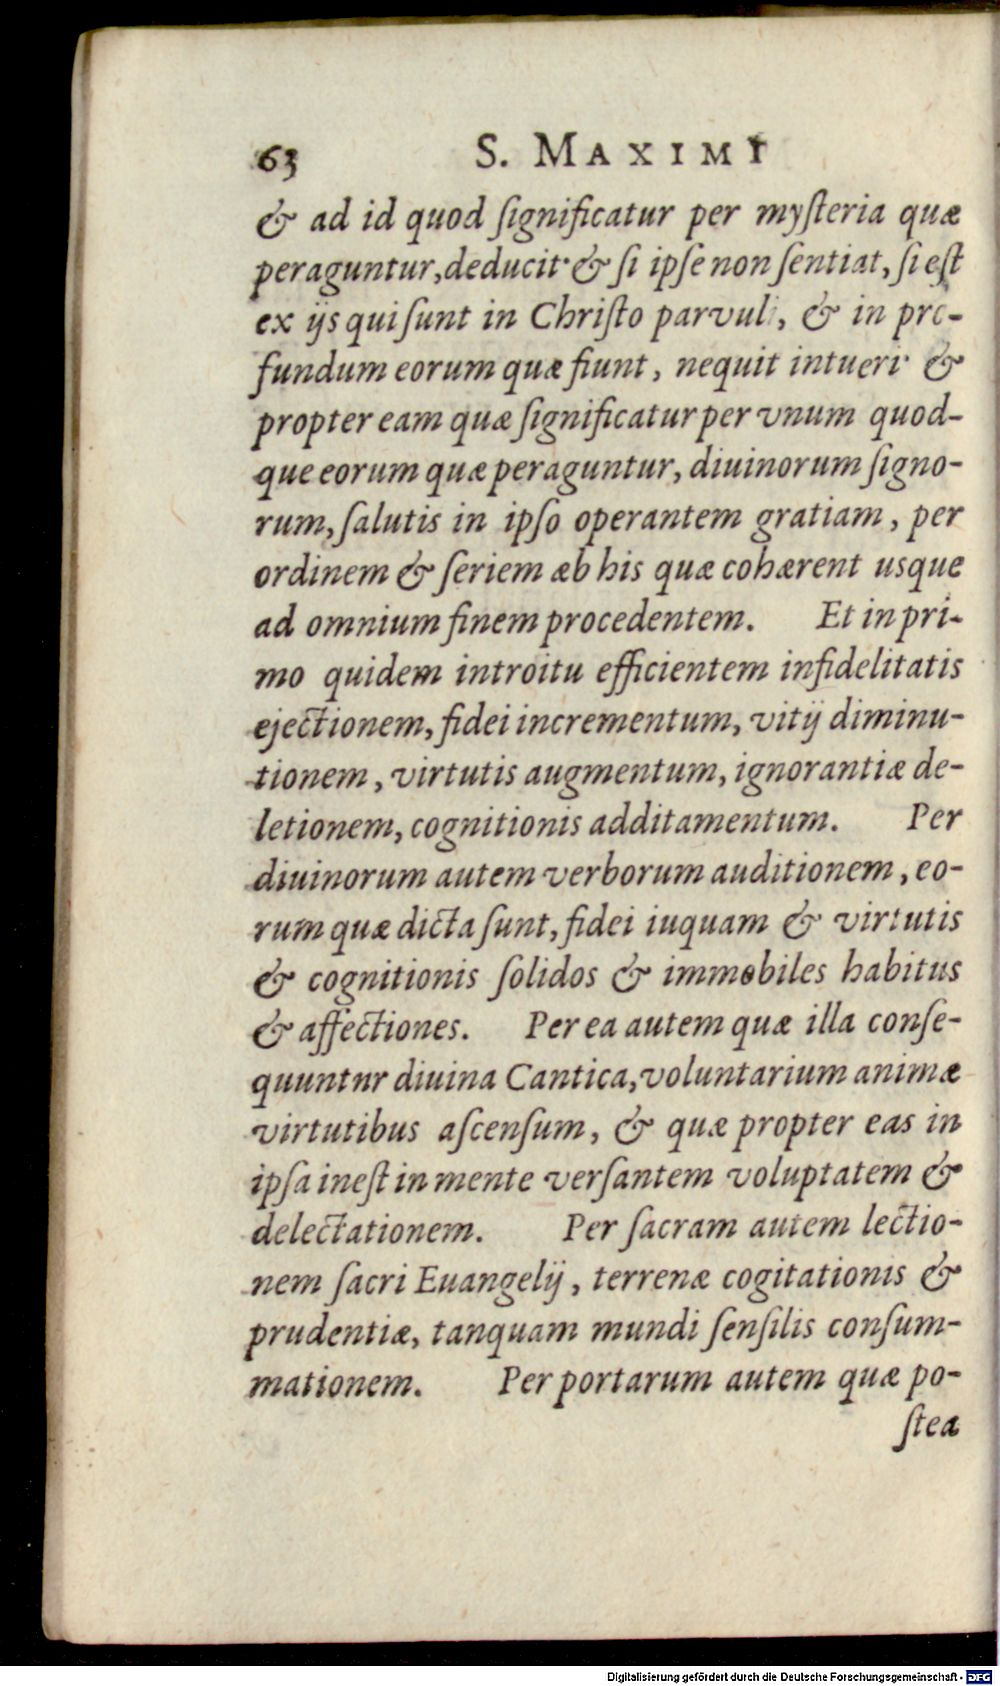 63 S. MAXIMI
& ad id quod ſignificatur per myſteria quæ
peraguntur, deducit· & ſi ipſe non ſentiat, ſi eſt
ex ijs qui ſunt in Chriſto parvuli, & in pro-
fundum eorum quæ fiunt, nequit intueri· &
propter eam quæ ſignificatur per vnum quod-
que eorum quæ peraguntur, diuinorum ſigno-
rum, ſalutis in ipſo operantem gratiam, per
ordinem & ſeriem æb his quæ cohærent usque
ad omnium finem procedentem. Et in pri-
mo quidem introitu efficientem infidelitatis
ejectionem, fidei incrementum, vitij diminu-
tionem, virtutis augmentum, ignorantiæ de-
letionem, cognitionis additamentum. Per
diuinorum autem verborum auditionem, eo-
rum quæ dicta ſunt, fidei iuquam & virtutis
& cognitionis ſolidos & immobiles habitus
& affectiones. Per ea autem quæ illa conſe-
quuntnr diuina Cantica, voluntarium animæ
virtutibus aſcenſum, & quæ propter eas in
ipſa ineſt in mente verſantem voluptatem &
delectationem. Per ſacram autem lectio-
nem ſacri Euangelij, terrenæ cogitationis &
prudentiæ, tanquam mundi ſenſilis conſum-
mationem. Per portarum autem quæ po-
ſtea
Digitalisierung gefördert durch die Deutsche Forschungsgemeinschaft - DFG